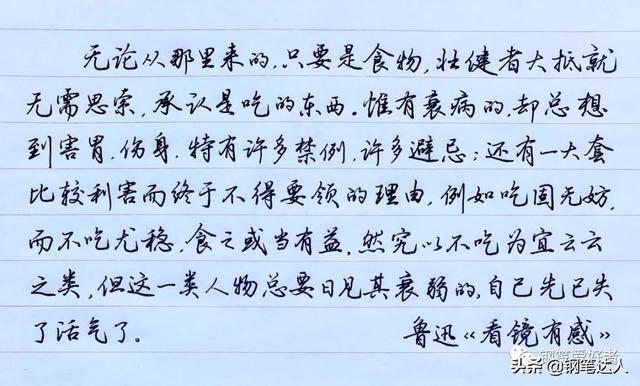 无论从那里来的,只要是食物,壮健者大抵就
无需思索,承认是吃的东西.惟有衰病的,却总想
到害胃,伤身.特有许多禁例,许多避忌;还有一大套
比较利害而终于不得要领的理由,例如吃固无妨,
而不吃尤稳,食之或当有益,然究以不吃为宜云云
之类,但这一类人物总要日见其衰弱的,自己先已失
了活气了。
鲁迅《看镜有感》
钢笔爱好者
头条@钢笔达人